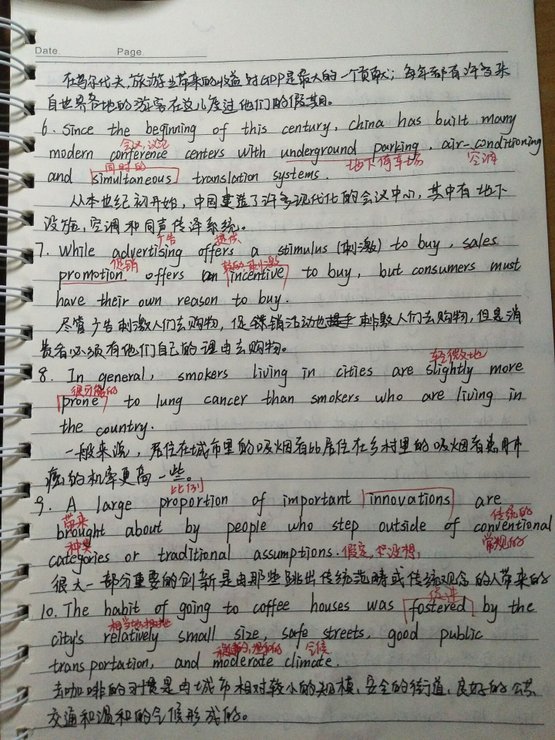 Date. Page.
在马尔代夫,旅游业带来的收益对GDP是最大的一个贡献;每年都有许多来
自世界各地的游客在这儿度过他们的假期。
6. Since the beginning of this century, china has built many
会议,议论
modern conference centers with underground parking, air-conditioning
同时的 地下停车场 空调
and simultaneous translation systems.
从本世纪初开始,中国建造了许多现代化的会议中心,其中有地下
设施,空调和同声传译系统。
广告 提供
7. While advertising offers a stimulus (刺激) to buy, sales
促销
promotion offers an incentive to buy, but consumers must
have their own reason to buy.
尽管广告刺激人们去购物,促销活动也刺激人们去购物,但是消
费者必须有他们自己的理由去购物。
轻微地
8. In general, smokers living in cities are slightly more
很可能的
prone to lung cancer than smokers who are living in
the country.
一般来说,居住在城市里的吸烟者比居住在乡村里的吸烟者患肺
癌的机率更高一些。
比例
9. A large proportion of important innovations are
带来 传统的
brought about by people who step outside of conventional
种类 常规的
categories or traditional assumptions. 假定,
很大一部分重要的创新是由那些跳出传统范畴或传统观念的人带来的
促进
10. The habit of going to coffee houses was fostered by the
相当地,相对地
city's relatively small size, safe streets, good public
温和的 气候
transportation, and moderate climate.
去咖啡的习惯是由城市相对较小的规模,安全的街道,良好的公共
交通和温和的气候形成的。